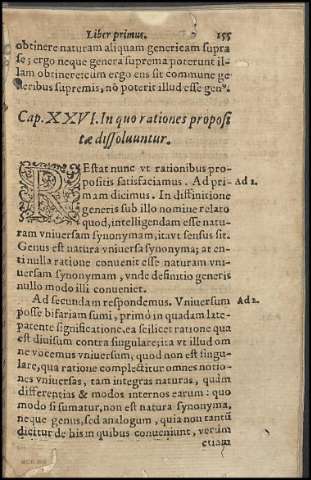 Liber primus. 155
obtinere naturam aliquam genericam supra
se; ergo neque genera suprema poterunt il-
lam obtinere: cum ergo ens sit commune ge
neribus supremis, nō poterit illud esse genꝰ.
Cap. XXVI. In quo rationes proposi
tæ dissoluuntur.
REstat nunc vt rationibus pro-
positis satisfaciamus. Ad pri- Ad 1.
mam dicimus. In diffinitione
generis sub illo nomine relato
quod, intelligendam esse natu-
ram vniuersam synonymam, itavt sensus sit.
Genus est natura vniuersa synonyma; at en-
ti nulla ratione conuenit esse naturam vni-
uersam synonymam, vnde definitio generis
nullo modo illi conueniet.
Ad secundam respondemus. Vniuersum Ad 2.
posse bifariam sumi, primò in quadam late-
patente significatione, ea scilicet ratione qua
est diuisum contra singulare; ita vt illud om
ne vocemus vniuersum, quod non est singu-
lare, qua ratione complectitur omnes notio-
nes vniuersas, tam integras naturas, quàm
differentias & modos internos earum: quo
modo si sumatur, non est natura synonyma,
neque genus, sed analogum, quia non tantū
dicitur de his in quibus conueniunt, verùm
etiam